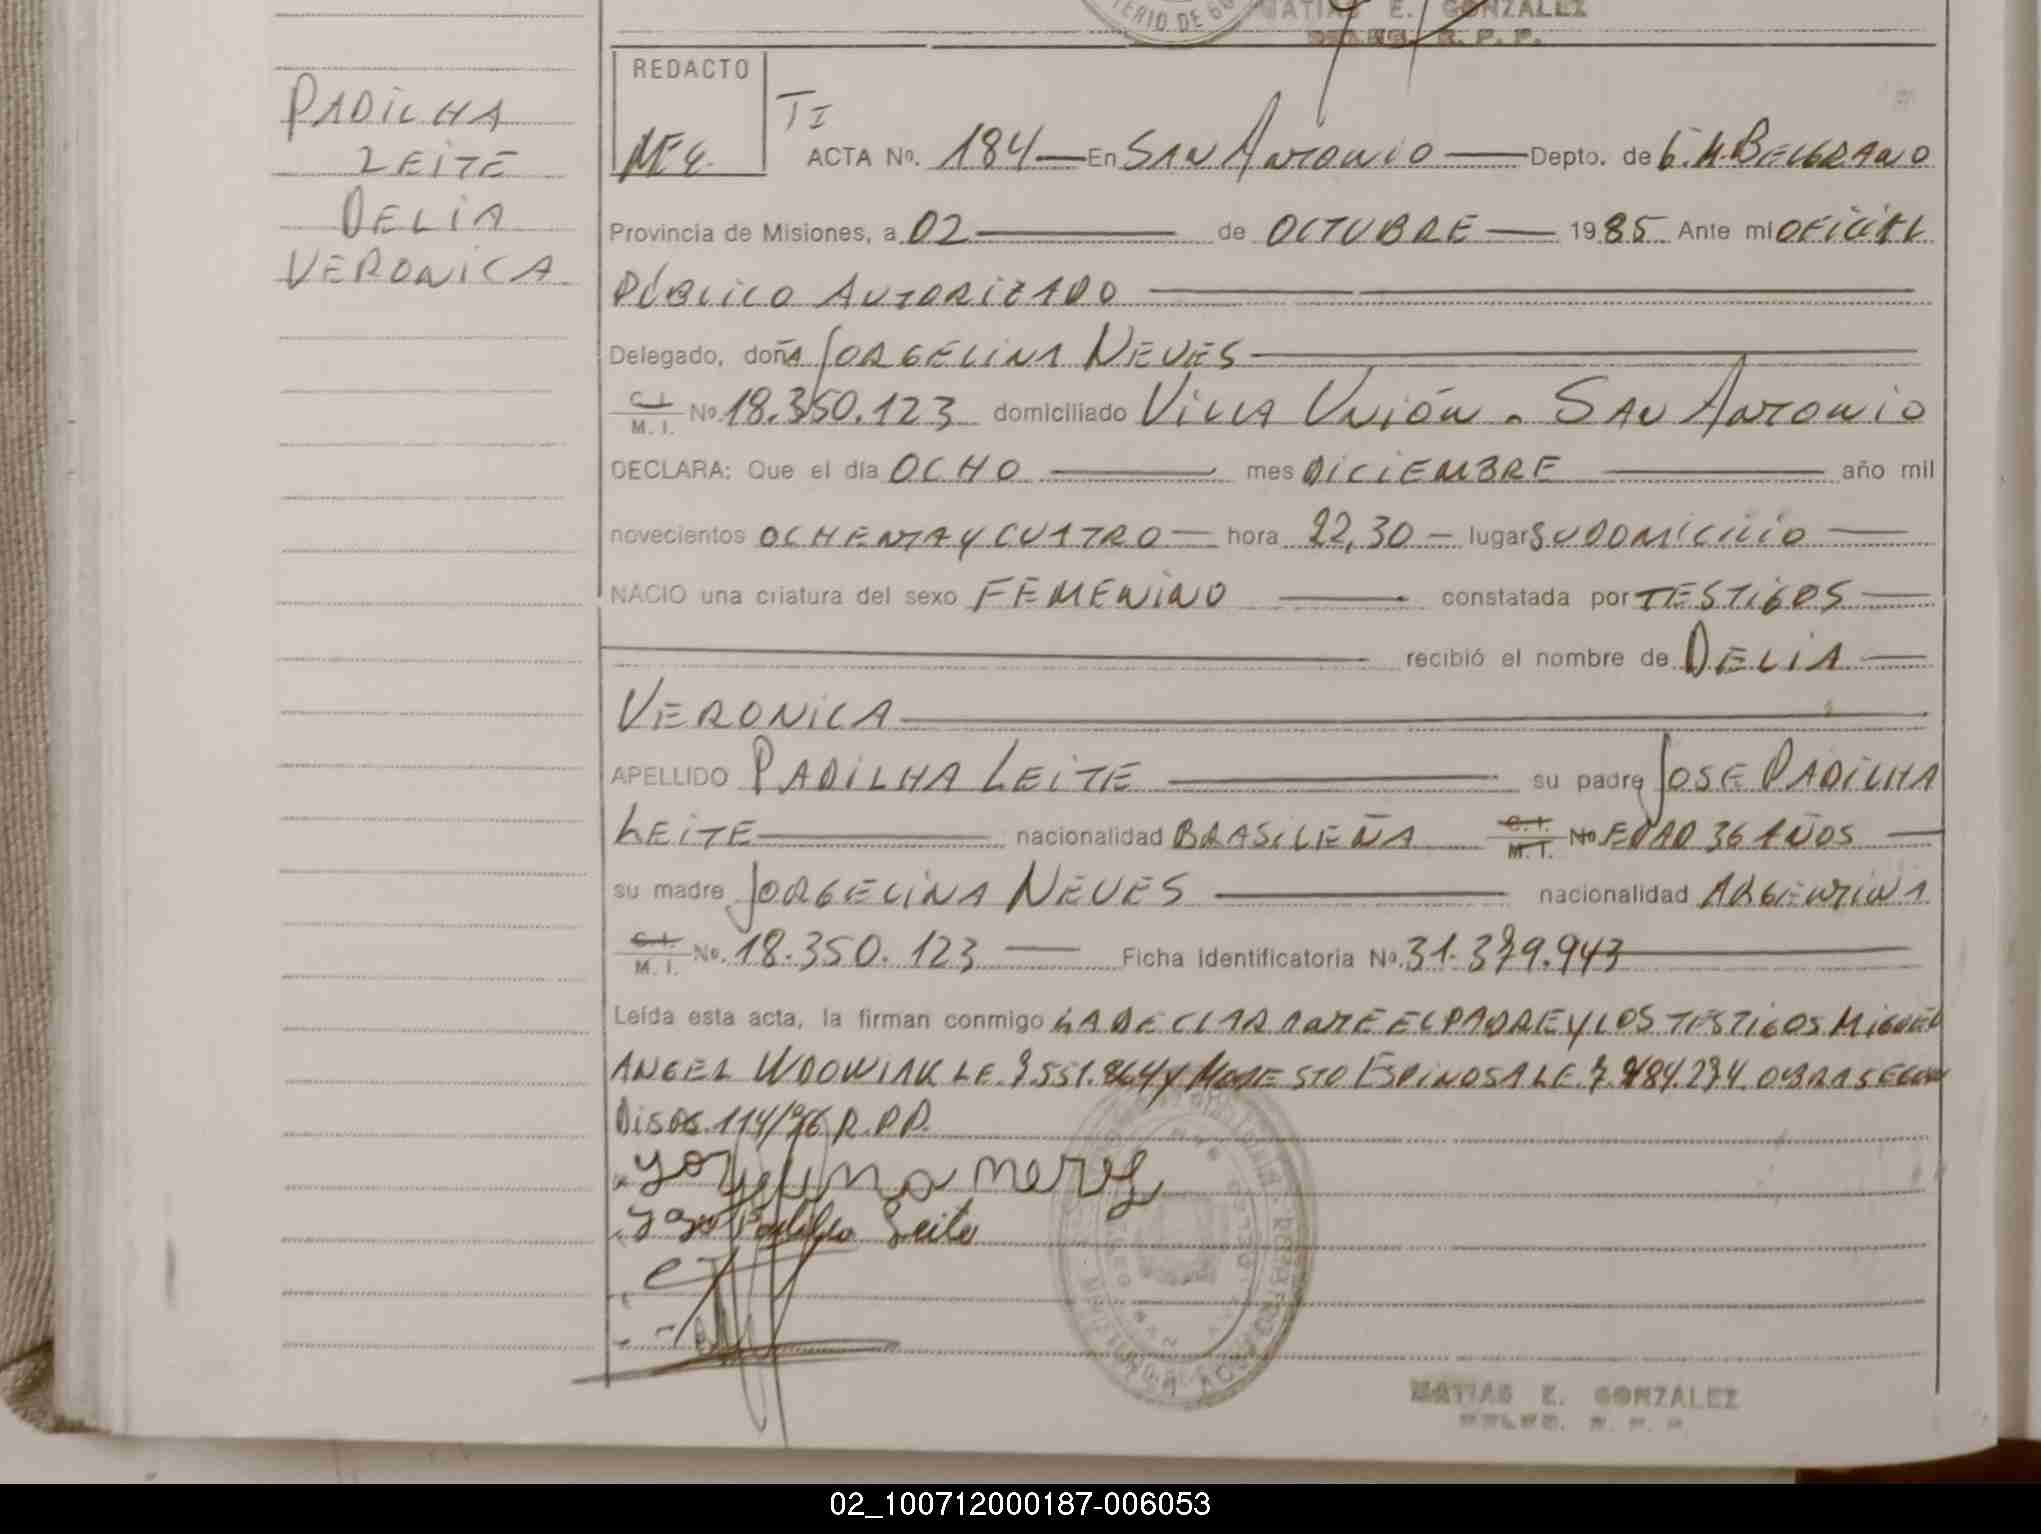 MATIAS E. GONZALEZ
DELEG. R. P. P.
PADILHA
LEITE
DELIA
VERONICA
REDACTO
TI
ACTA No. 184 — En SAN ANTONIO — Depto. de G.M. BELGRANO
Provincia de Misiones, a 02 — de OCTUBRE — 1985 Ante mi OFICIAL
PÚBLICO AUTORIZADO —
Delegado, doñA JORGELINA NEVES —
C. I. / M. I. No. 18.350.123 domiciliado VILLA UNIÓN - SAN ANTONIO
DECLARA: Que el día OCHO — mes DICIEMBRE — año mil
novecientos OCHENTA Y CUATRO — hora 22,30 — lugar SU DOMICILIO —
NACIO una criatura del sexo FEMENINO — constatada por TESTIGOS —
— recibió el nombre de DELIA —
VERONICA —
APELLIDO PADILHA LEITE — su padre JOSE PADILHA
LEITE — nacionalidad BRASILEÑA C. I. / M. I. No EDAD 36 AÑOS —
su madre JORGELINA NEVES — nacionalidad ARGENTINA
C. I. / M. I. No. 18.350.123 — Ficha Identificatoria No. 31.379.943 —
Leída esta acta, la firman conmigo LA DECLARANTE EL PADRE Y LOS TESTIGOS MIGUEL
ANGEL WDOWIAK LE. 7.551.864 Y MODESTO ESPINOSA LE. OBRA SEGUN
DISOS. 114/76 R.P.P.
Jorgelina neves
Jose Padilha Leite
MATIAS E. GONZALEZ
DELEG. R. P. P.
02_100712000187-006053